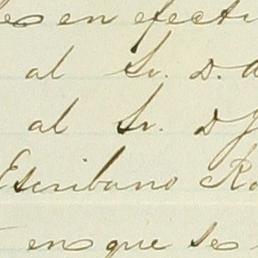 en efecti
al Sr. D.
al Sr. D
Escribano Ro
en que se